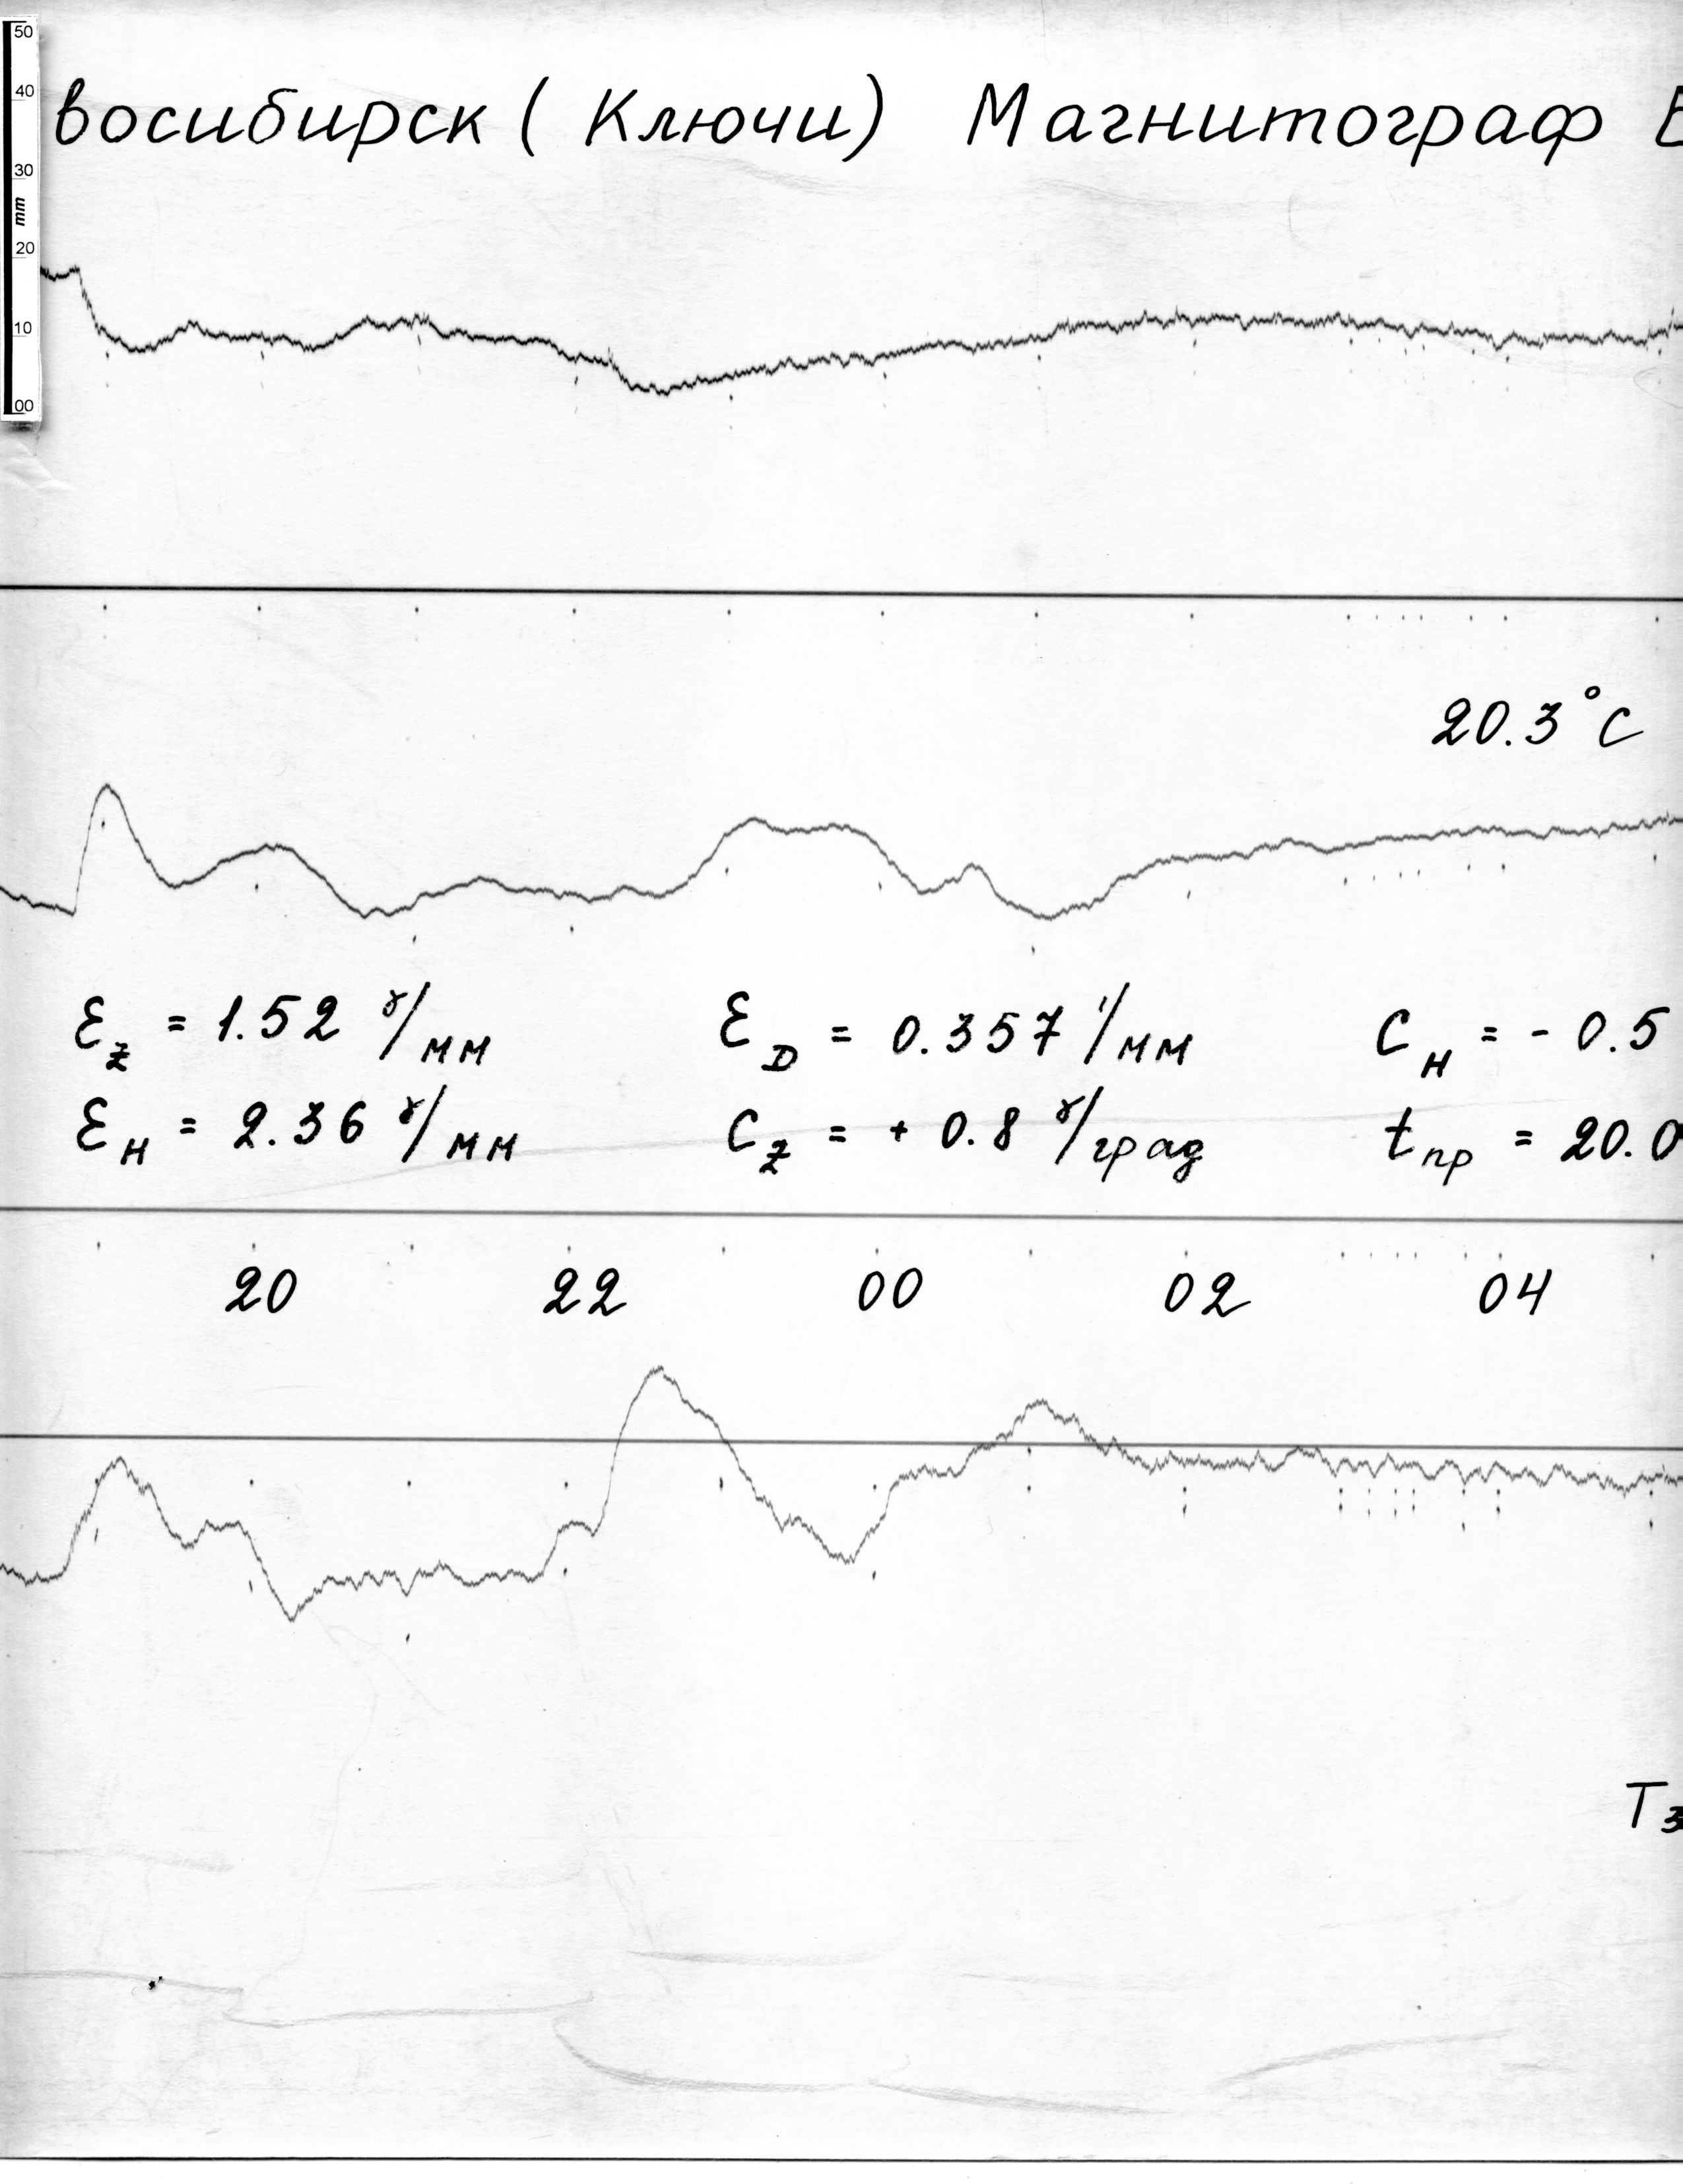 50
40
восибирск ( Ключи ) Магнитограф
30
mm
20
10
00
20.3°C
Ɛz = 1.52 γ/мм ƐD = 0.357 '/мм CH = - 0.5
ƐH = 2.36 γ/мм Cz = + 0.8 γ/град tпр = 20.0
20 22 00 02 04
Tз